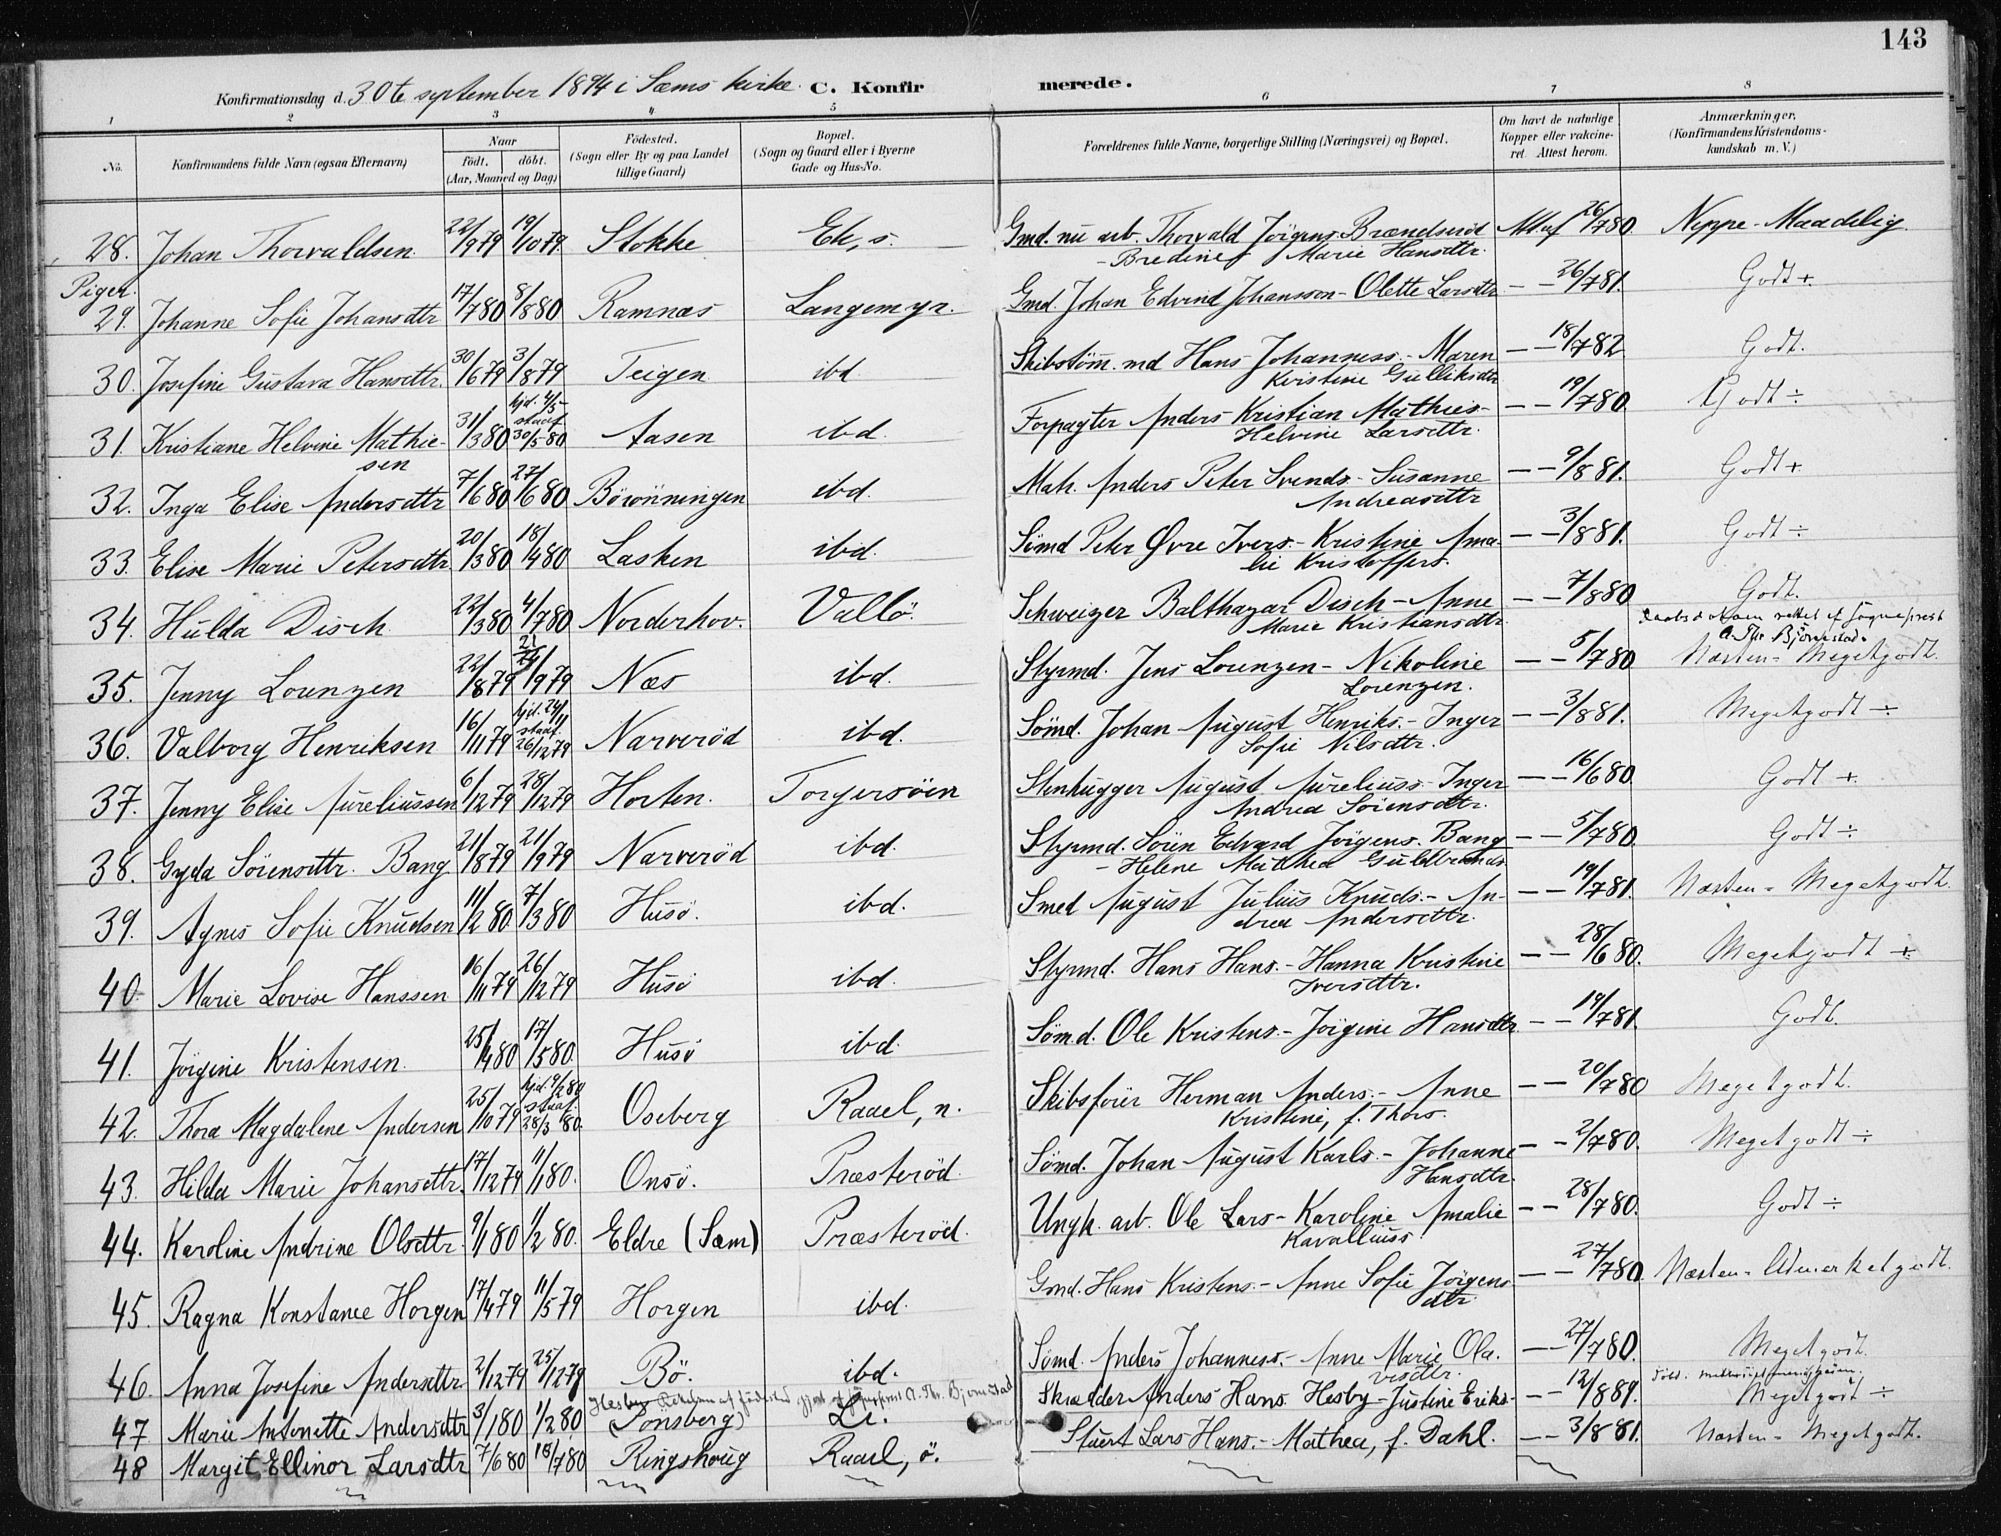 143
Konfirmationsdag d. 30te september 1894 i Sæms kirke. C. Konfirmerede.
1 2 3 4 5 6 7 8
No. Konfirmandens fulde Navn (ogsaa Efternavn) Naar født. døbt. (Aar, Maaned og Dag) Fødested. (Sogn eller By og paa Landet tillige Gaard) Bopæl. (Sogn og Gaard eller i Byerne Gade og Hus-No. Forældrenes fulde Navne, borgerlige Stilling (Næringsvei) og Bopæl. Om havt de naturlige Kopper eller vakcineret. Attest herom. Anmærkninger. (Konfirmandens Kristendomskundskab m. V.)
28. Johan Thorvaldsen. 22/9 79 19/10 79 Stokke Ek, s. Gmd. nu arb. Thorvald Jørgens. Brændsrød - Bredine Marie Hansdtr. 26/7 80 Neppe-Maadelig.
Piger.
29. Johanne Sofie Johansdtr 17/7 80 8/8 80 Ramnæs Langemyr. Gmd. Johan Edvind Johansson - Olette Larsdtr - - 26/7 81. Godt +
30. Josefine Gustava Hansdtr. 30/6 79 3/8 79 Teigen ibd Skibstøm. md Hans Johanness. - Maren Kristine Gulliksdtr - - 18/7 82 Godt.
31. Kristiane Helvine Mathiesen 31/3 80 hjd. 4/5 - stadf. 30/5 80 Aasen ibd. Forpagter Anders Kristian Mathies. - Helvine Larsdtr. - - 19/7 80. Godt ÷
32. Inga Elise Andersdtr 7/6 80 27/6 80 Børønningen ibd. Mah. Anders Peter Svends. - Susanne Andreasdtr - - 9/8 81. Godt +
33. Elise Marie Petersdtr. 20/3 80 18/4 80 Lasken ibd. Sømd Peter Øvre Ivers. - Kristine Amalie Kristoffers. - - 3/8 81. Godt ÷
34. Hulda Disch 22/3 80 4/7 80 Norderhov. Vallø. Schweizer Balthazar Disch - Anne Marie Kristiansdtr - - 7/8 80 Godt.
Daabsdatoen rettet af sogneprest A. Thr. Bjørnestad.
35. Jenny Lorenzen 22/8 79 21/9 79 Næs ibd. Styrmd. Jens Lorenzen - Nikoline Lorenzen. - - 5/7 80 Næsten - Megetgodt.
36. Valborg Henriksen 16/11 79 hjd. 24/11 stadf. 26/12 79 Narverød ibd. Sømd. Johan August Henriks. - Inger Sofie Nilsdtr. - - 3/8 81. Megetgodt ÷
37. Jenny Elise Aureliussen 6/12 79 28/12 79 Horten. Torgersøen Stenhugger August Aureliuss. Inger Andrea Sørensdtr. - - 16/6 80. Godt +
38. Gyda Sørensdtr. Bang 21/8 79 21/9 79 Narverød ibd. Styrmd. Søren Edvard Jørgens. Bang - Helene Mathea Guldbrands - - 5/7 80. Godt ÷
39. Agnes Sofie Knudsen 11/2 80 7/3 80 Husø. ibd. Smed August Julius Knuds. - Andrea Andersdtr. - - 19/7 81. Næsten - Megetgodt.
40. Marie Lovise Hanssen 16/11 79 26/12 79 Husø ibd. Styrmd. Hans Hans. - Hanna Kristine Iversdtr. - - 28/6 80. Megetgodt +
41. Jørgine Kristensen. 25/4 80 17/5 80. Husø ibd. Sømd. Ole Kristens. - Jørgine Hansdtr - - 19/7 81. Godt.
42. Thora Magdalene Andersen 25/10 79 hjd. 9/2 80 stadf. 28/3 80. Oseberg Raael, n. Skibsfører Herman Anders. - Anne Kristine, f. Thors. - - 20/7 80 Megetgodt.
43. Hilda Marie Johansdtr. 17/12 79 11/1 80. Onsø. Præsterød. Sømd. Johan August Karls. - Johanne Hansdtr. - - 2/7 80. Megetgodt ÷
44. Karoline Andrine Olsdtr. 9/1 80 1/2 80. Eldre (Sæm) Præsterød. Ungk. arb. Ole Lars - Karoline Amalie Kavalliuss - - 28/7 80. Godt ÷
45. Ragna Konstance Horgen 17/4 79 11/5 79 Horgen ibd. Gmd. Hans Kristens. - Anne Sofie Jørgensdtr. - - 27/7 80. Næsten - Udmerketgodt.
46. Anna Josefine Andersdtr 2/12 79 25/12 79 Bø. ibd. Sømd. Anders Johanness. - Anne Marie Olavesdtr. - 27/7 80. Megetgodt.
Hesby Rettelsen af fødested gjort af sogneprest A. Thr. Bjørnestad
47. Marie Antonette Andersdtr 3/1 80 1/2 80 (Tønsberg) Li. Skrædder Anders Hans. Hesby - Justine Eriks. - - 12/8 89. Megetgodt ÷
48 Margit Ellinor Larsdtr 7/6 80 18/7 80 Ringshoug Raael, ø. Stuert Lars Hans. - Mathea, f. Dahl. - - 3/8 81. Næsten - Megetgodt.